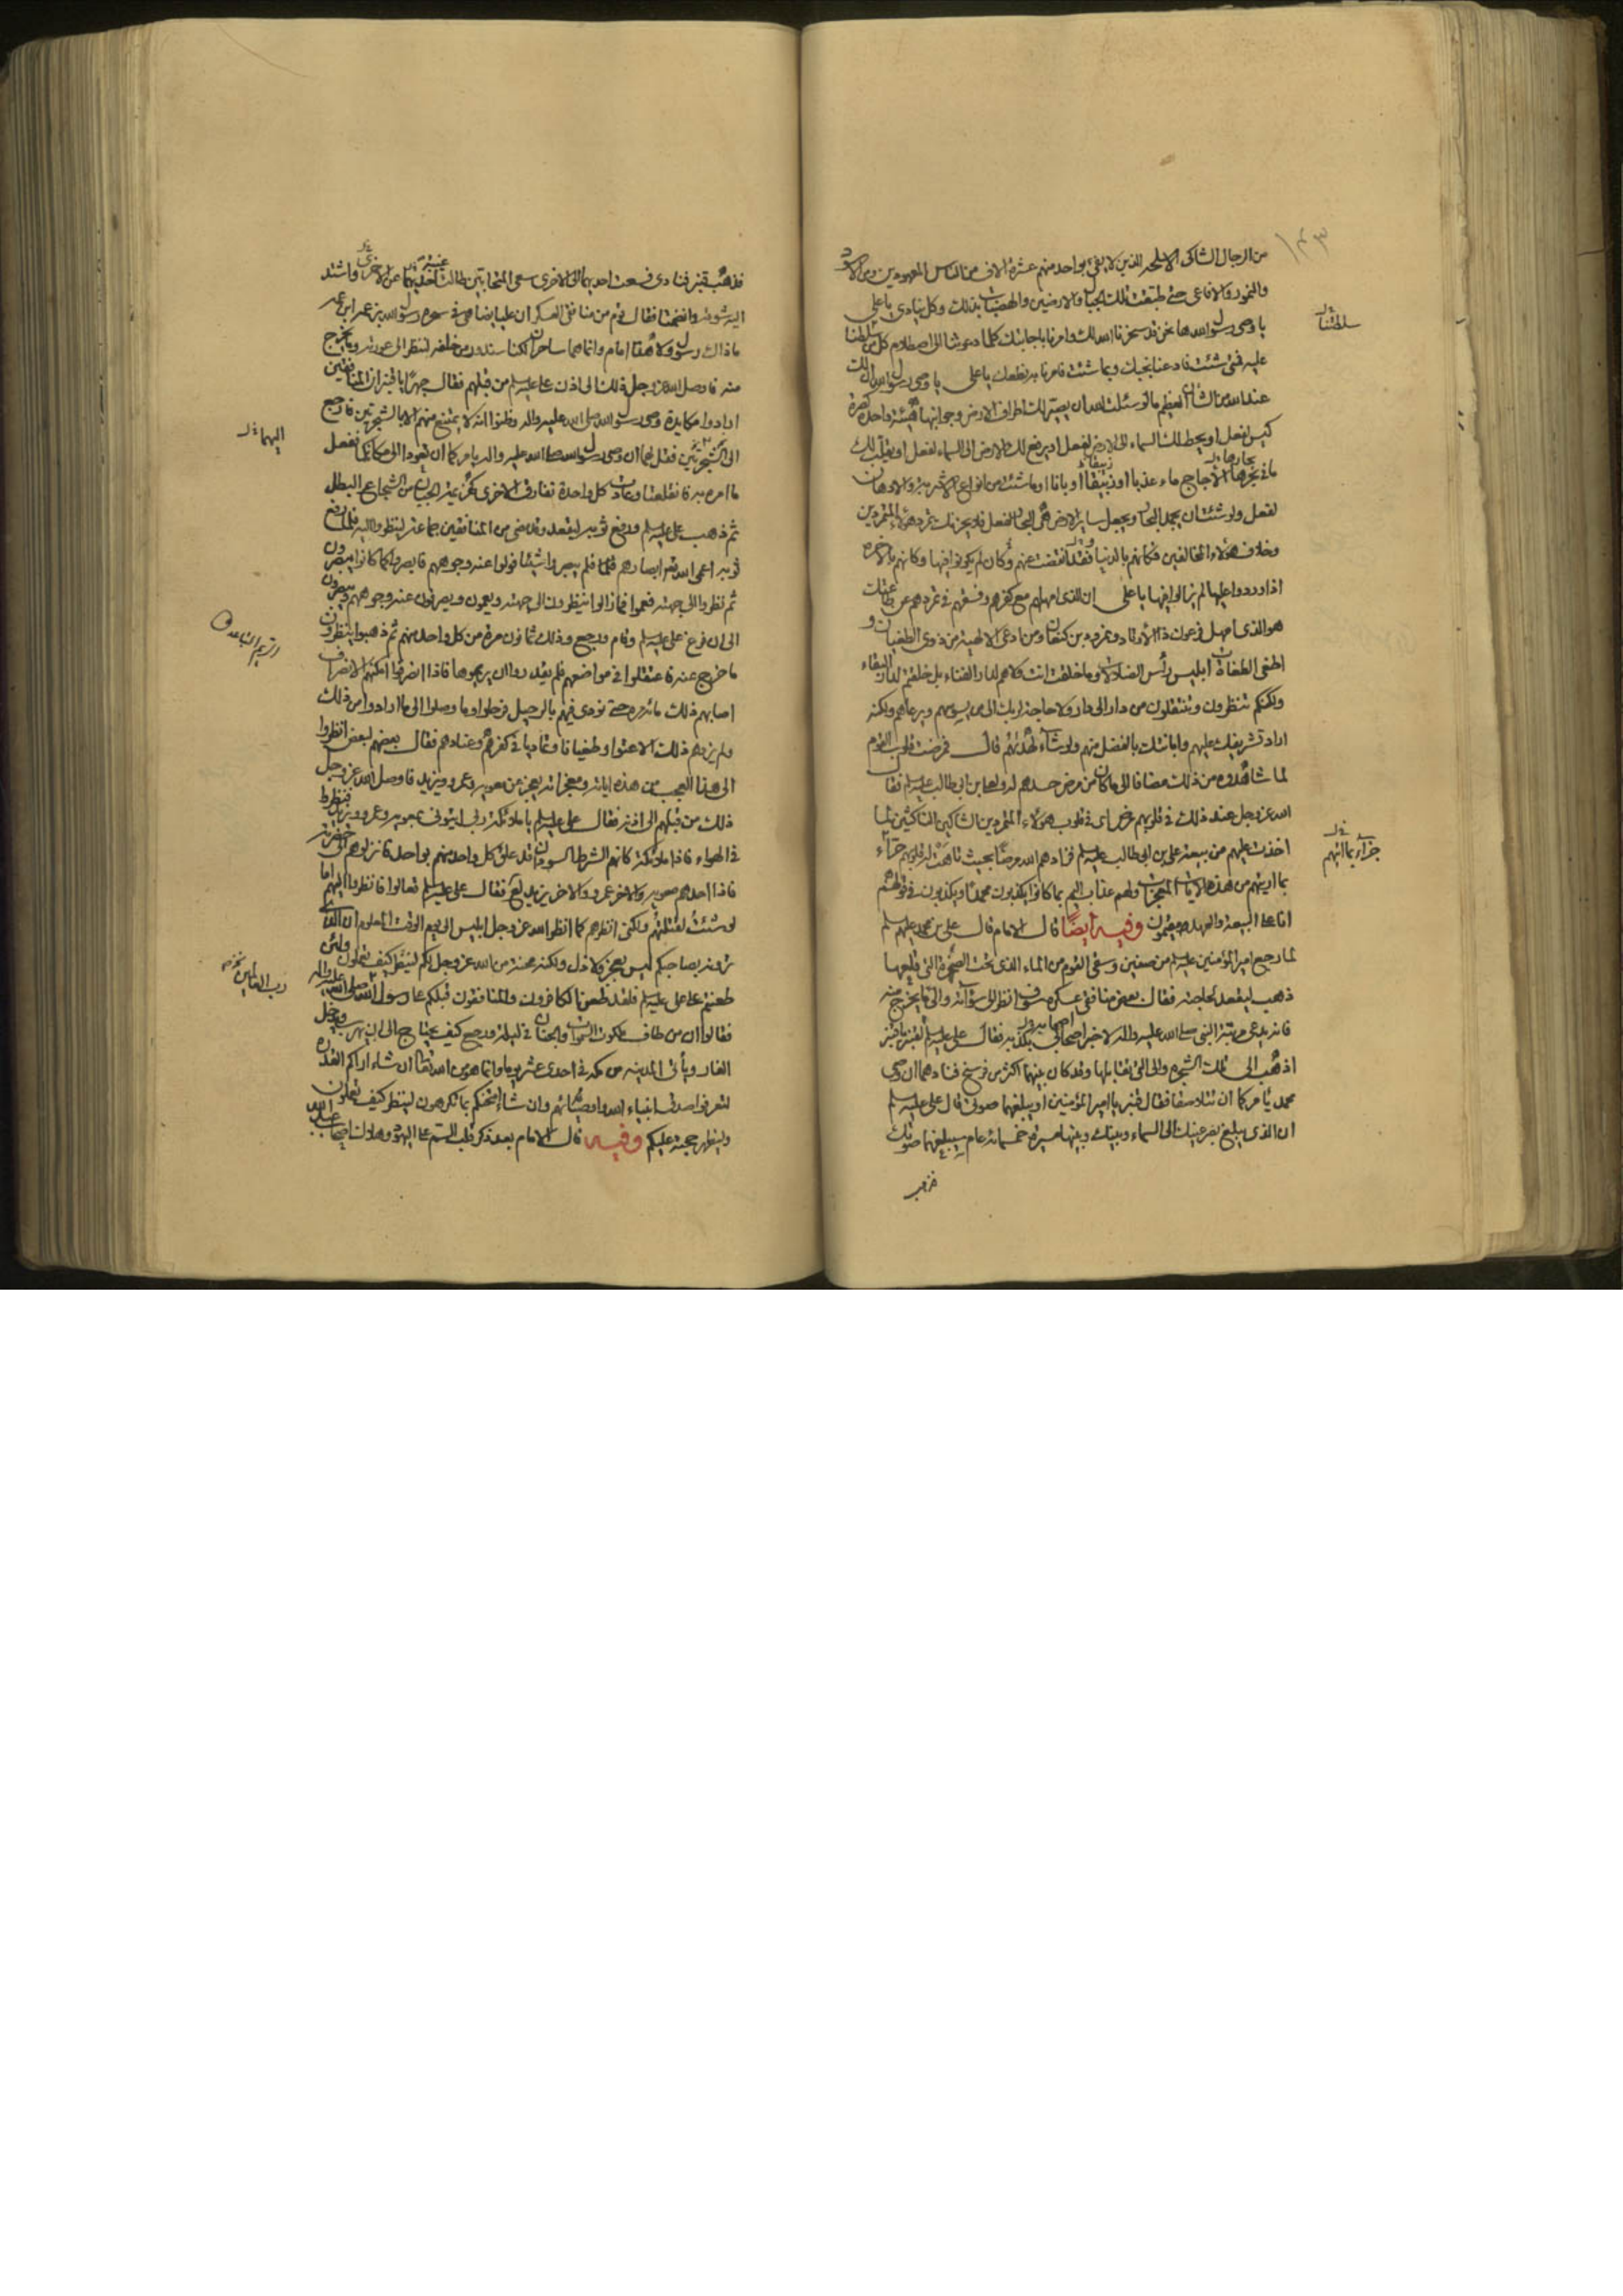 من الرجال الشاكي الاسلحة الذين لا يفي بواحد منهم عشرة الاف من الناس المعهودين ومن الاسود
والنمور والافاعي حتى طبقت تلك الجبال والارضين والهضبات بذلك وكل ينادي يا علي
يا وصي رسول الله ها نحن قد سخرنا الله لك وامرنا باجابتك كلما دعوتنا الى اصطلام كل من سلطنا
عليه فمتى شئت فادعنا نجبك وبما شئت فامرنا به نطعك يا علي يا وصي رسول الله ان لك
عند الله من الشأن العظيم ما لو سئلت الله ان يصير لك اطراف الارض وجوانبها هيئة واحدة كصرة
كيس لفعل او يحط لك السماء الى الارض لفعل او يرفع لك الارض الى السماء لفعل او يقلب لك
ما في بحارها الاجاج ماء عذبا او زيبقا او بانا او ما شئت من انواع الاشربة والادهان
لفعل ولو شئت ان يجمد البحار ويجعل ساير الارض هي البحار لفعل فلا يحزنك تمرد هؤلاء المتمردين
وخلاف هؤلاء المخالفين فكانهم بالدنيا فقد انقضت عنهم وكان لم يكونوا فيها وكانهم بالاخرة
اذا وردوا عليها لم يزالوا فيها يا علي ان الذي امهلهم مع كفرهم وفسقهم في تمردهم عن طاعتك
هو الذي امهل فرعون ذا الاوتاد ونمرود بن كنعان ومن ادعى الالهية من ذوي الطغيان و
اطغى الطغاة ابليس رأس الضلالات وما خلقت انت ولا هم لدار الفناء بل خلقتم لدار البقاء
ولكنكم تنظرون وتنتقلون من دار الى دار ولا حاجة لربك الى من يسوسهم ويرعاهم ولكنه
اراد تشريفك عليهم وابانتك بالفضل منهم ولو شاء لهديهم قال فمرضت قلوب القوم
لما شاهدوه من ذلك مضافا الى ما كان من مرض حسدهم له ولعلي بن ابي طالب عليه السلم فقال
الله عز وجل عند ذلك في قلوبهم مرض اى في قلوب هؤلاء المتمردين الشاكين الناكثين لما
اخذت عليهم من بيعة علي بن ابي طالب عليه السلم فزادهم الله مرضا بحيث تاهت له قلوبهم جزاء
بما اريتهم من هذه الايات المعجزات ولهم عذاب اليم بما كانوا يكذبون محمدا ويكذبون في قولهم
انا على البيعة والعهد مقيمون وفيه ايضا قال الامام قال علي بن محمد عليهم السلم
لما رجع امير المؤمنين عليه السلم من صفين وسقى القوم من الماء الذي تحت الصخرة التي قلبها
ذهب ليقعد لحاجته فقال بعض منافقي عسكره سوف انظر الى سوأته والى ما يخرج منه
فانه يدعي مرتبة النبي صلى الله عليه واله لاخبر اصحابي بكذبه فقال علي عليه السلم لقنبر يا قنبر
اذهب الى تلك الشجرة والى التي تقابلها وقد كان بينهما اكثر من فرسخ فنادهما ان وصي
محمد يأمركما ان تتلاصقا فقال قنبر يا امير المؤمنين او يبلغهما صوتي قال علي عليه السلم
ان الذي يبلغ بصر عينك الى السماء وبينك وبينها مسيرة خمسمائة عام سيبلغهما صوتك
سلطتنا
جزاء بما اريتهم
فذهب قنبر فنادى فسعت احديهما الى الاخرى سعي المتحابين طالت غيبة احديهما عن الاخرى واشتد
اليه شوقه وانضمتا فقال قوم من منافقي العسكر ان عليا يضاهي في سحره رسول الله بزعمه ابن عمه
ما ذاك رسول ولا هذا امام وانما هما ساحران لكنا سندور من خلفه لننظر الى عورته وما يخرج
منه فاوصل الله عز وجل ذلك الى اذن علي عليه السلم من قبلهم فقال جهرا يا قنبر ان المنافقين
ارادوا مكايدة وصي رسول الله صلى الله عليه واله وظنوا انه لا يمتنع منهم الا بالشجرتين فارجع
الى الشجرتين فقل لهما ان وصي رسول الله صلى الله عليه واله يامركما ان تعودا الى مكانكما ففعل
ما امره به فانقلعتا وعادت كل واحدة تفارق الاخرى كهزيمة الجبان من الشجاع البطل
ثم ذهب علي عليه السلم ورفع ثوبه ليقعد وقد مضى من المنافقين جماعة لينظروا اليه فلما رفع
ثوبه اعمى الله تعالى ابصارهم فلم يبصروا شيئا فولوا عنه وجوههم فابصروا كما كانوا يبصرون
ثم نظروا الى جهته فعموا فما زالوا ينظرون الى جهته ويعمون ويصرفون عنه وجوههم ويبصرون
الى ان فرغ علي عليه السلم وقام ورجع وذلك ثمانون مرة من كل واحد منهم ثم ذهبوا ينظرون
ما خرج عنه فاعتقلوا في مواضعهم فلم يقدروا ان يريموها فاذا انصرفوا امكنهم الانصراف
اصابهم ذلك مائة مرة حتى نودي فيهم بالرحيل فرحلوا وما وصلوا الى ما ارادوا من ذلك
ولم يزدهم ذلك الا عتوا وطغيانا وتماديا في كفرهم وعنادهم فقال بعضهم لبعض انظروا
الى هذا العجب من هذه اياته ومعجزاته يعجز عن معوية وعمرو ويزيد فاوصل الله عز وجل
ذلك من قبلهم الى اذنه فقال علي عليه السلم يا ملائكة ربي ايتوني بمعوية وعمرو ويزيد فنظروا
في الهواء فاذا ملائكة كانهم الشرط السودان قد علق كل واحد منهم بواحد فانزلوهم الى حضرته
فاذا احدهم معوية والاخر عمرو والاخر يزيد فقال علي عليه السلم تعالوا فانظروا اليهم اما
لو شئت لقتلتهم ولكني انظرهم كما انظر الله عز وجل ابليس الى يوم الوقت المعلوم ان الذي
ترونه بصاحبكم ليس بعجز ولا ذل ولكنه محنة من الله عز وجل لكم لينظر كيف تعملون ولئن
طعنتم على علي عليه السلم فلقد طعن الكافرون والمنافقون قبلكم على رسول الله صلى الله عليه واله
فقالوا ان من طاف ملكوت السموات والجنان في ليلة ورجع كيف يحتاج الى ان يهرب ويدخل
الغار ويأتي المدينة من مكة في احدى عشر يوما وانما هو من الله تعالى ان شاء اراكم القدرة
لتعرفوا صدق انبياء الله واوصيائهم وان شاء امتحنكم بما تكرهون لينظر كيف تعملون
وليظهر حجته عليكم وفيه قال الامام بعد ذكر قلب السم على اليهود
اليهما
رب العالمين